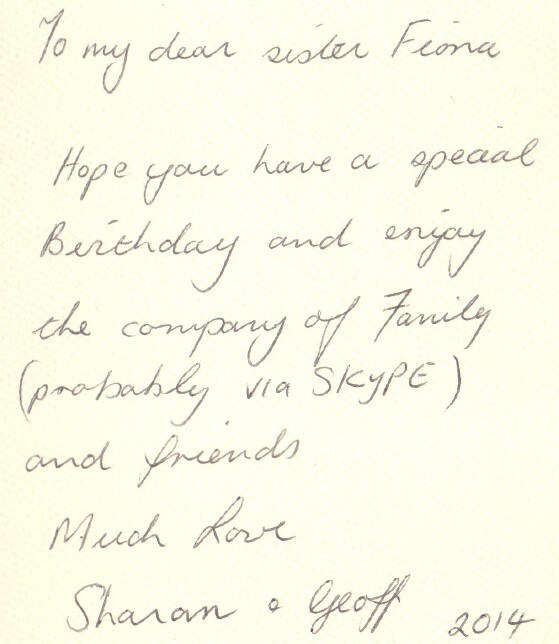 To my dear sister Fiona
Hope you have a special
Birthday and enjoy
the company of Family
(probably via SKYPE)
and friends
Much Love
Sharan & Geoff 2014